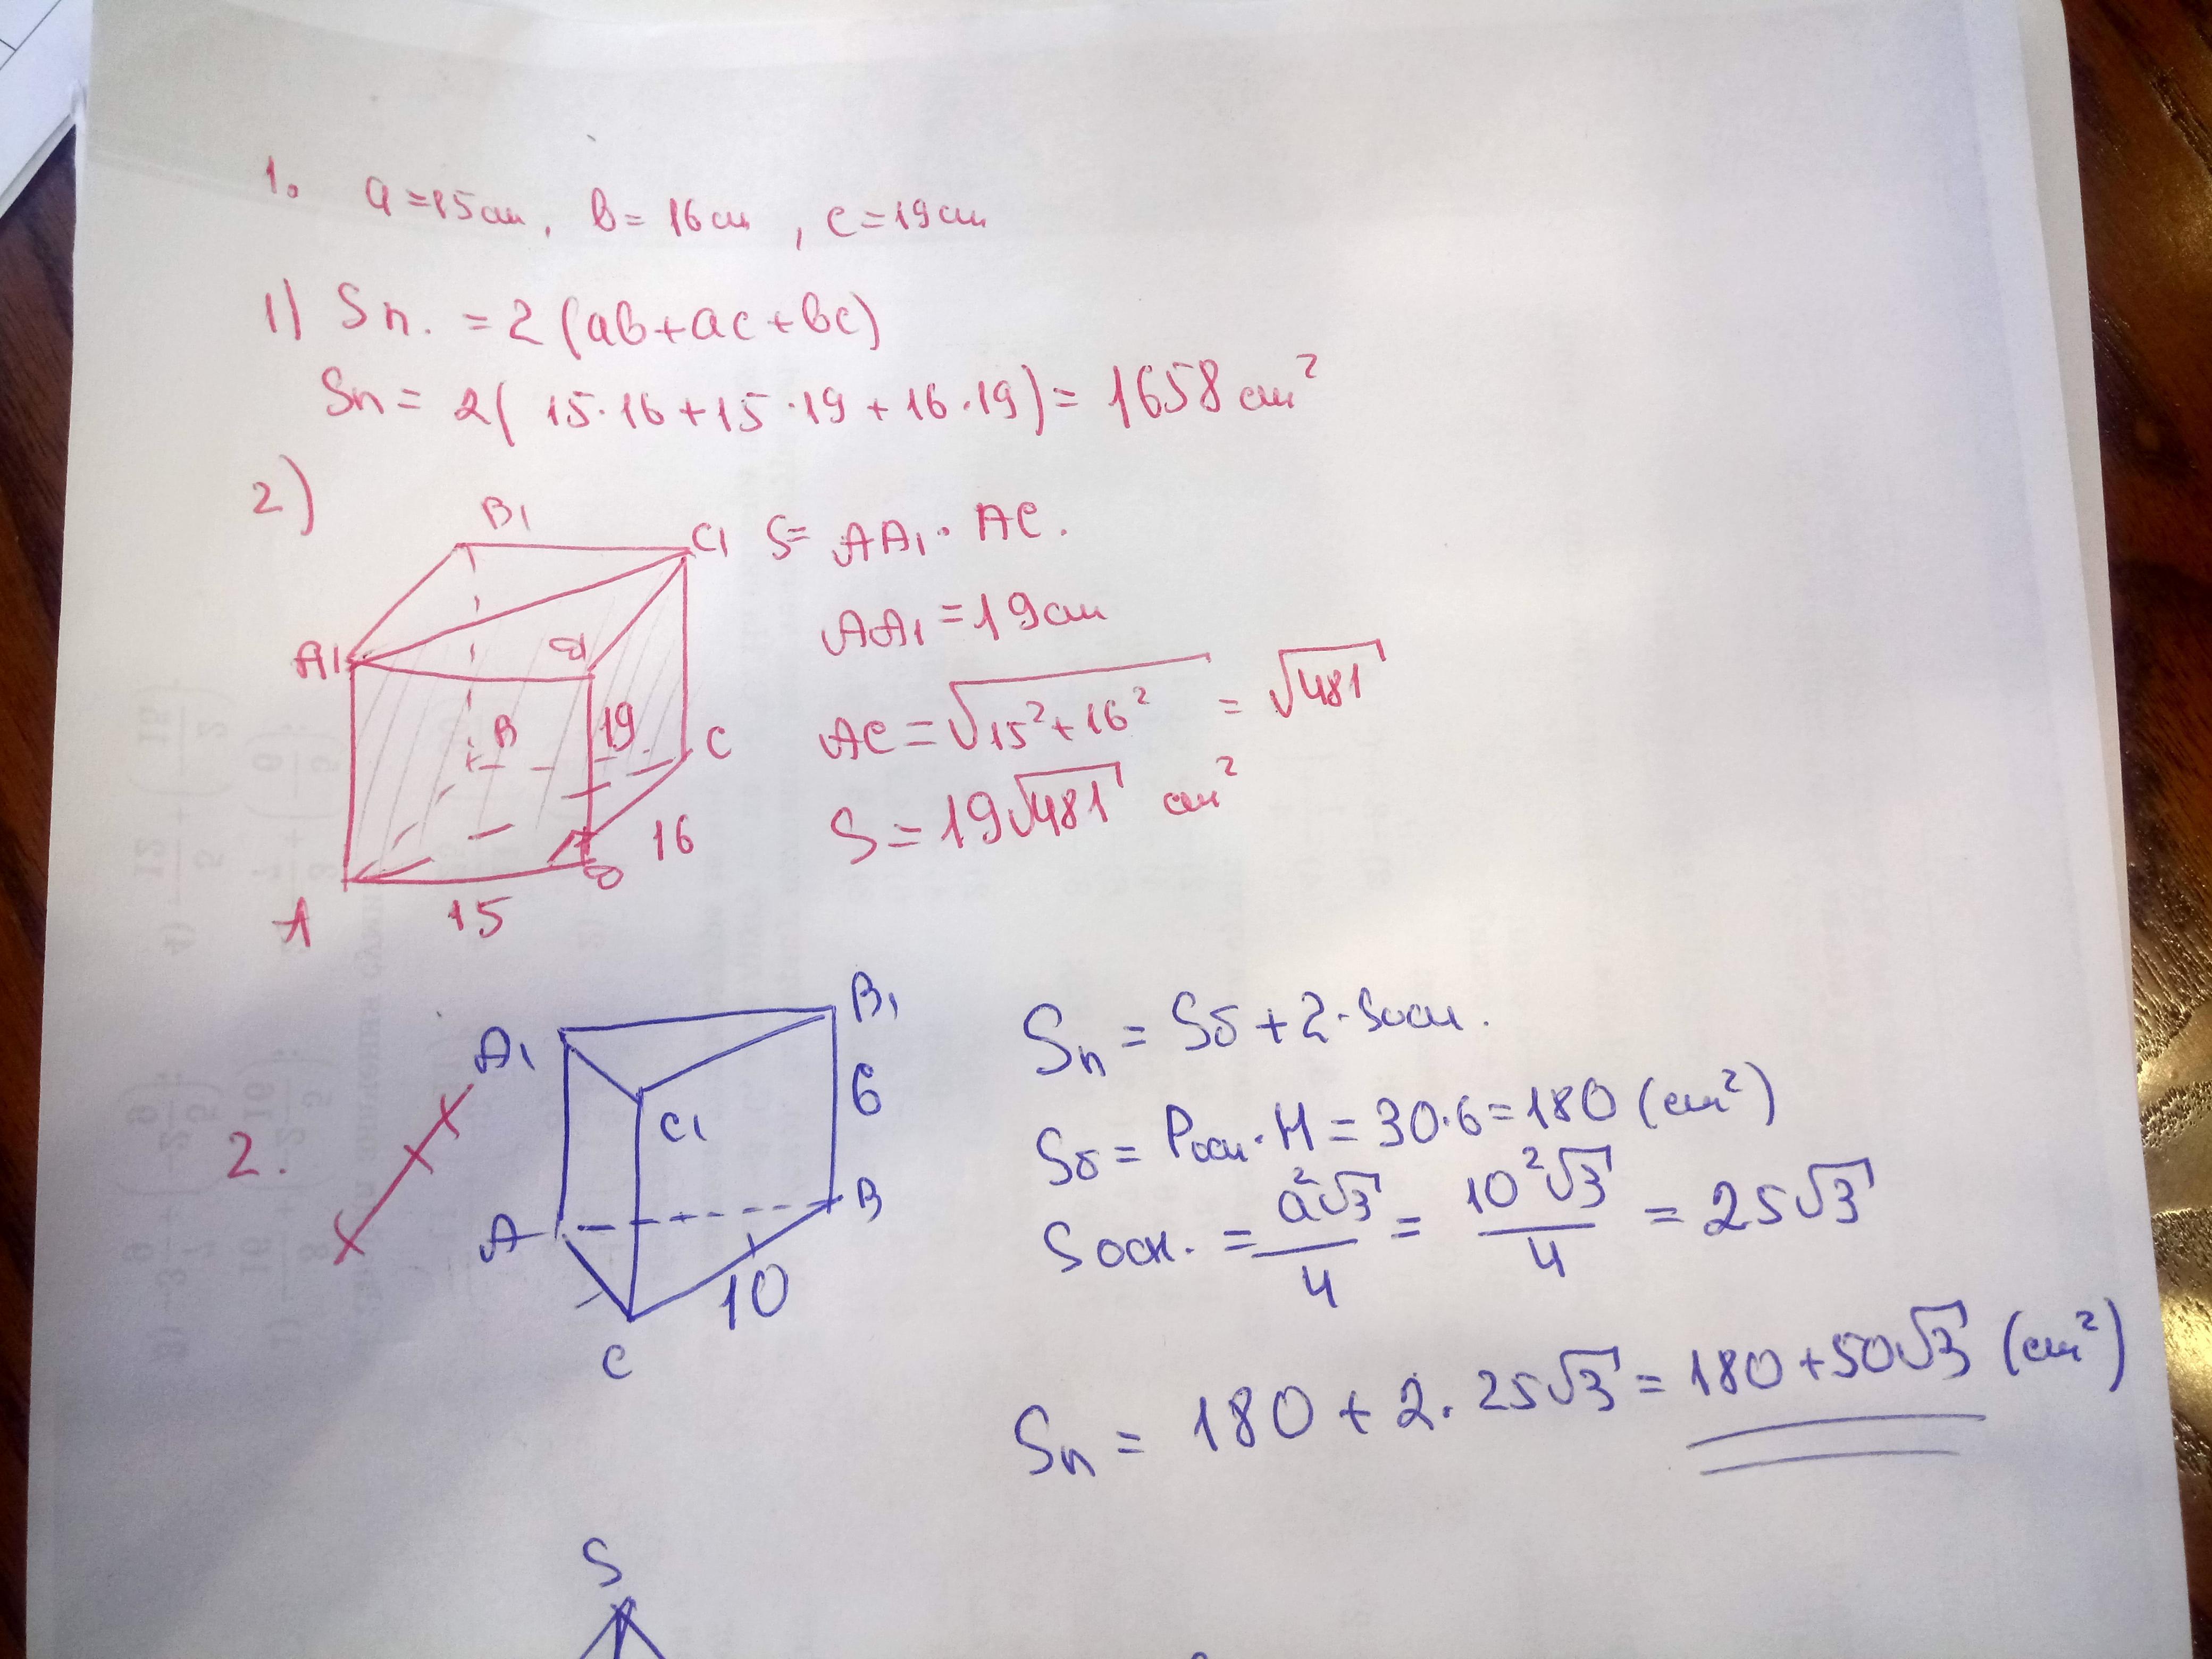 1. a = 15 см, b = 16 см, c = 19 см
1) Sп. = 2 (ab + ac + bc)
Sп = 2( 15·16 + 15·19 + 16·19) = 1658 см²
2)
B1
C1
A1
D1
B
19
C
16
D
A
15
S = AA1 · AC.
AA1 = 19 см
AC = √15² + 16² = √481
S = 19√481 см²
2.
A1
B1
C1
6
A
B
10
C
Sп = Sб + 2·Sосн.
Sб = Pосн · H = 30·6 = 180 (см²)
Sосн. = a²√3/4 = 10²√3/4 = 25√3
Sп = 180 + 2·25√3 = 180 + 50√3 (см²)
S